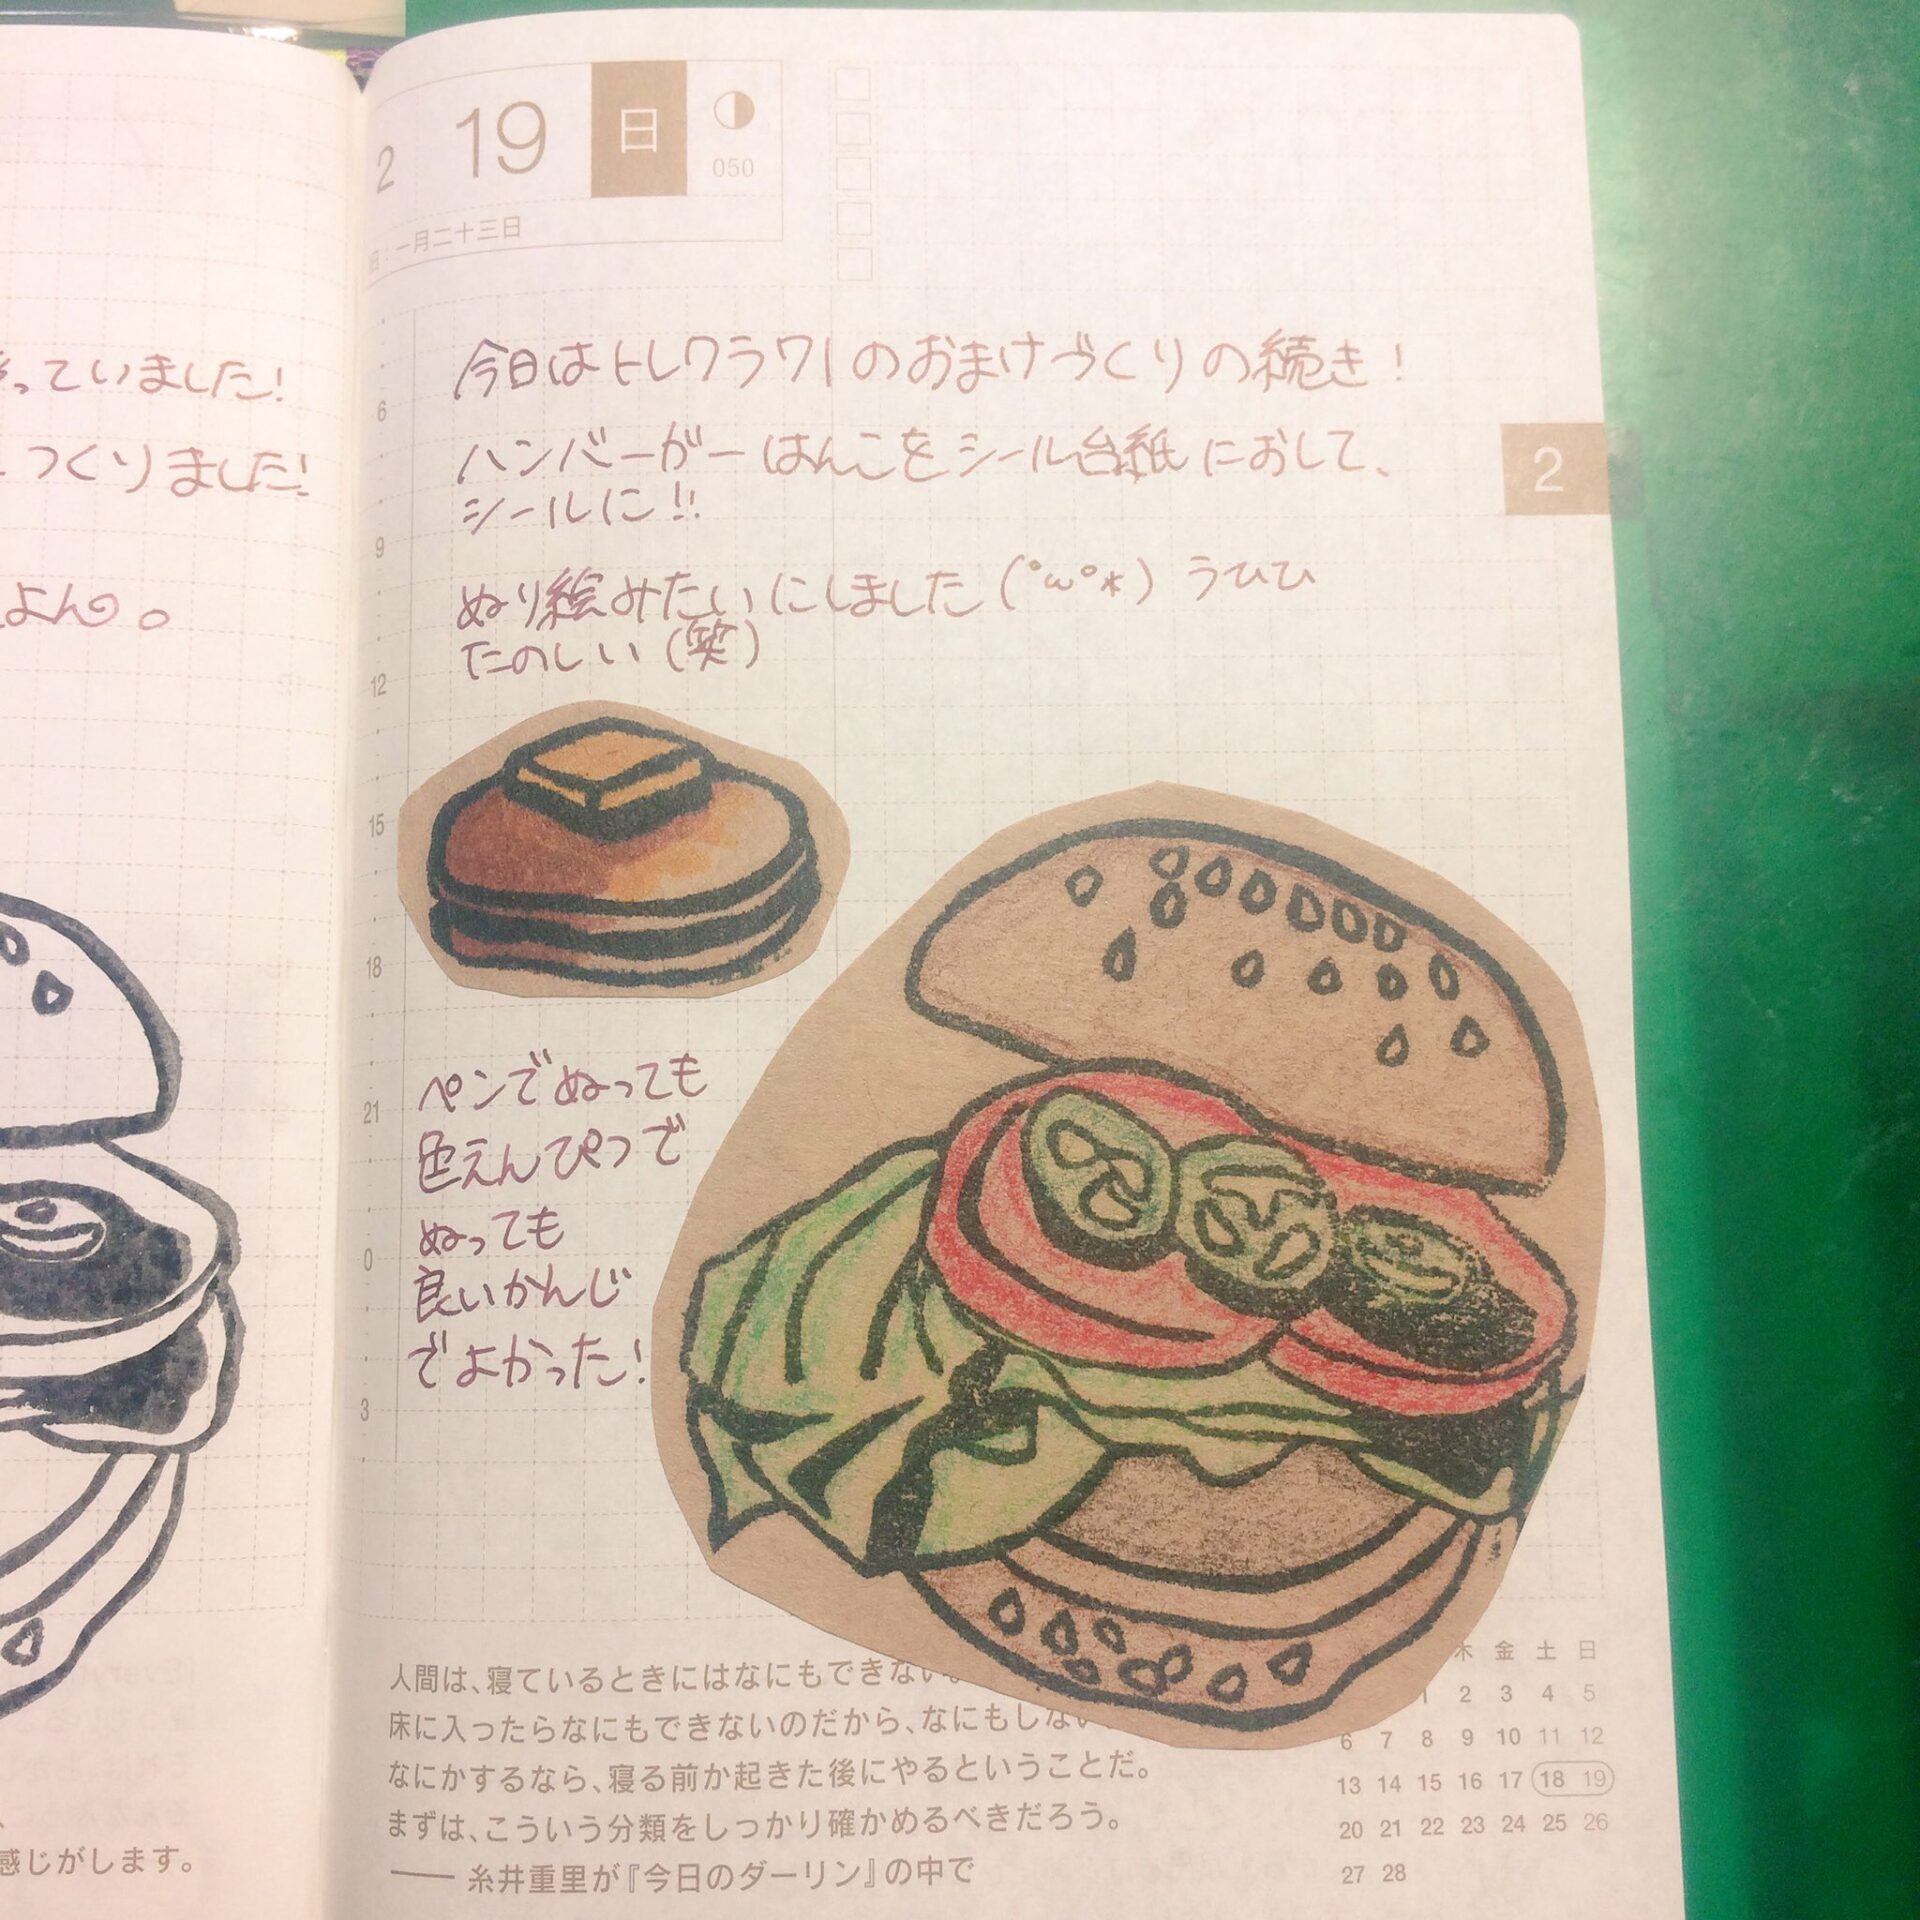 っていました!
つくりました!
よん。
感じがします。
2 19 日
050
旧:一月二十三日
今日はトレクラワ1のおまけづくりの続き!
ハンバーガーはんこをシール台紙におして、
シールに!!
ぬり絵みたいにしました(°ω°*)うひひ
たのしい(笑)
2
6
9
12
15
18
21
0
3
ペンでぬっても
色えんぴつで
ぬっても
良いかんじ
でよかった!
人間は、寝ているときにはなにもできない
床に入ったらなにもできないのだから、なにもしない
なにかするなら、寝る前か起きた後にやるということだ。
まずは、こういう分類をしっかり確かめるべきだろう。
── 糸井重里が『今日のダーリン』の中で
木 金 土 日
1 2 3 4 5
6 7 8 9 10 11 12
13 14 15 16 17 18 19
20 21 22 23 24 25 26
27 28